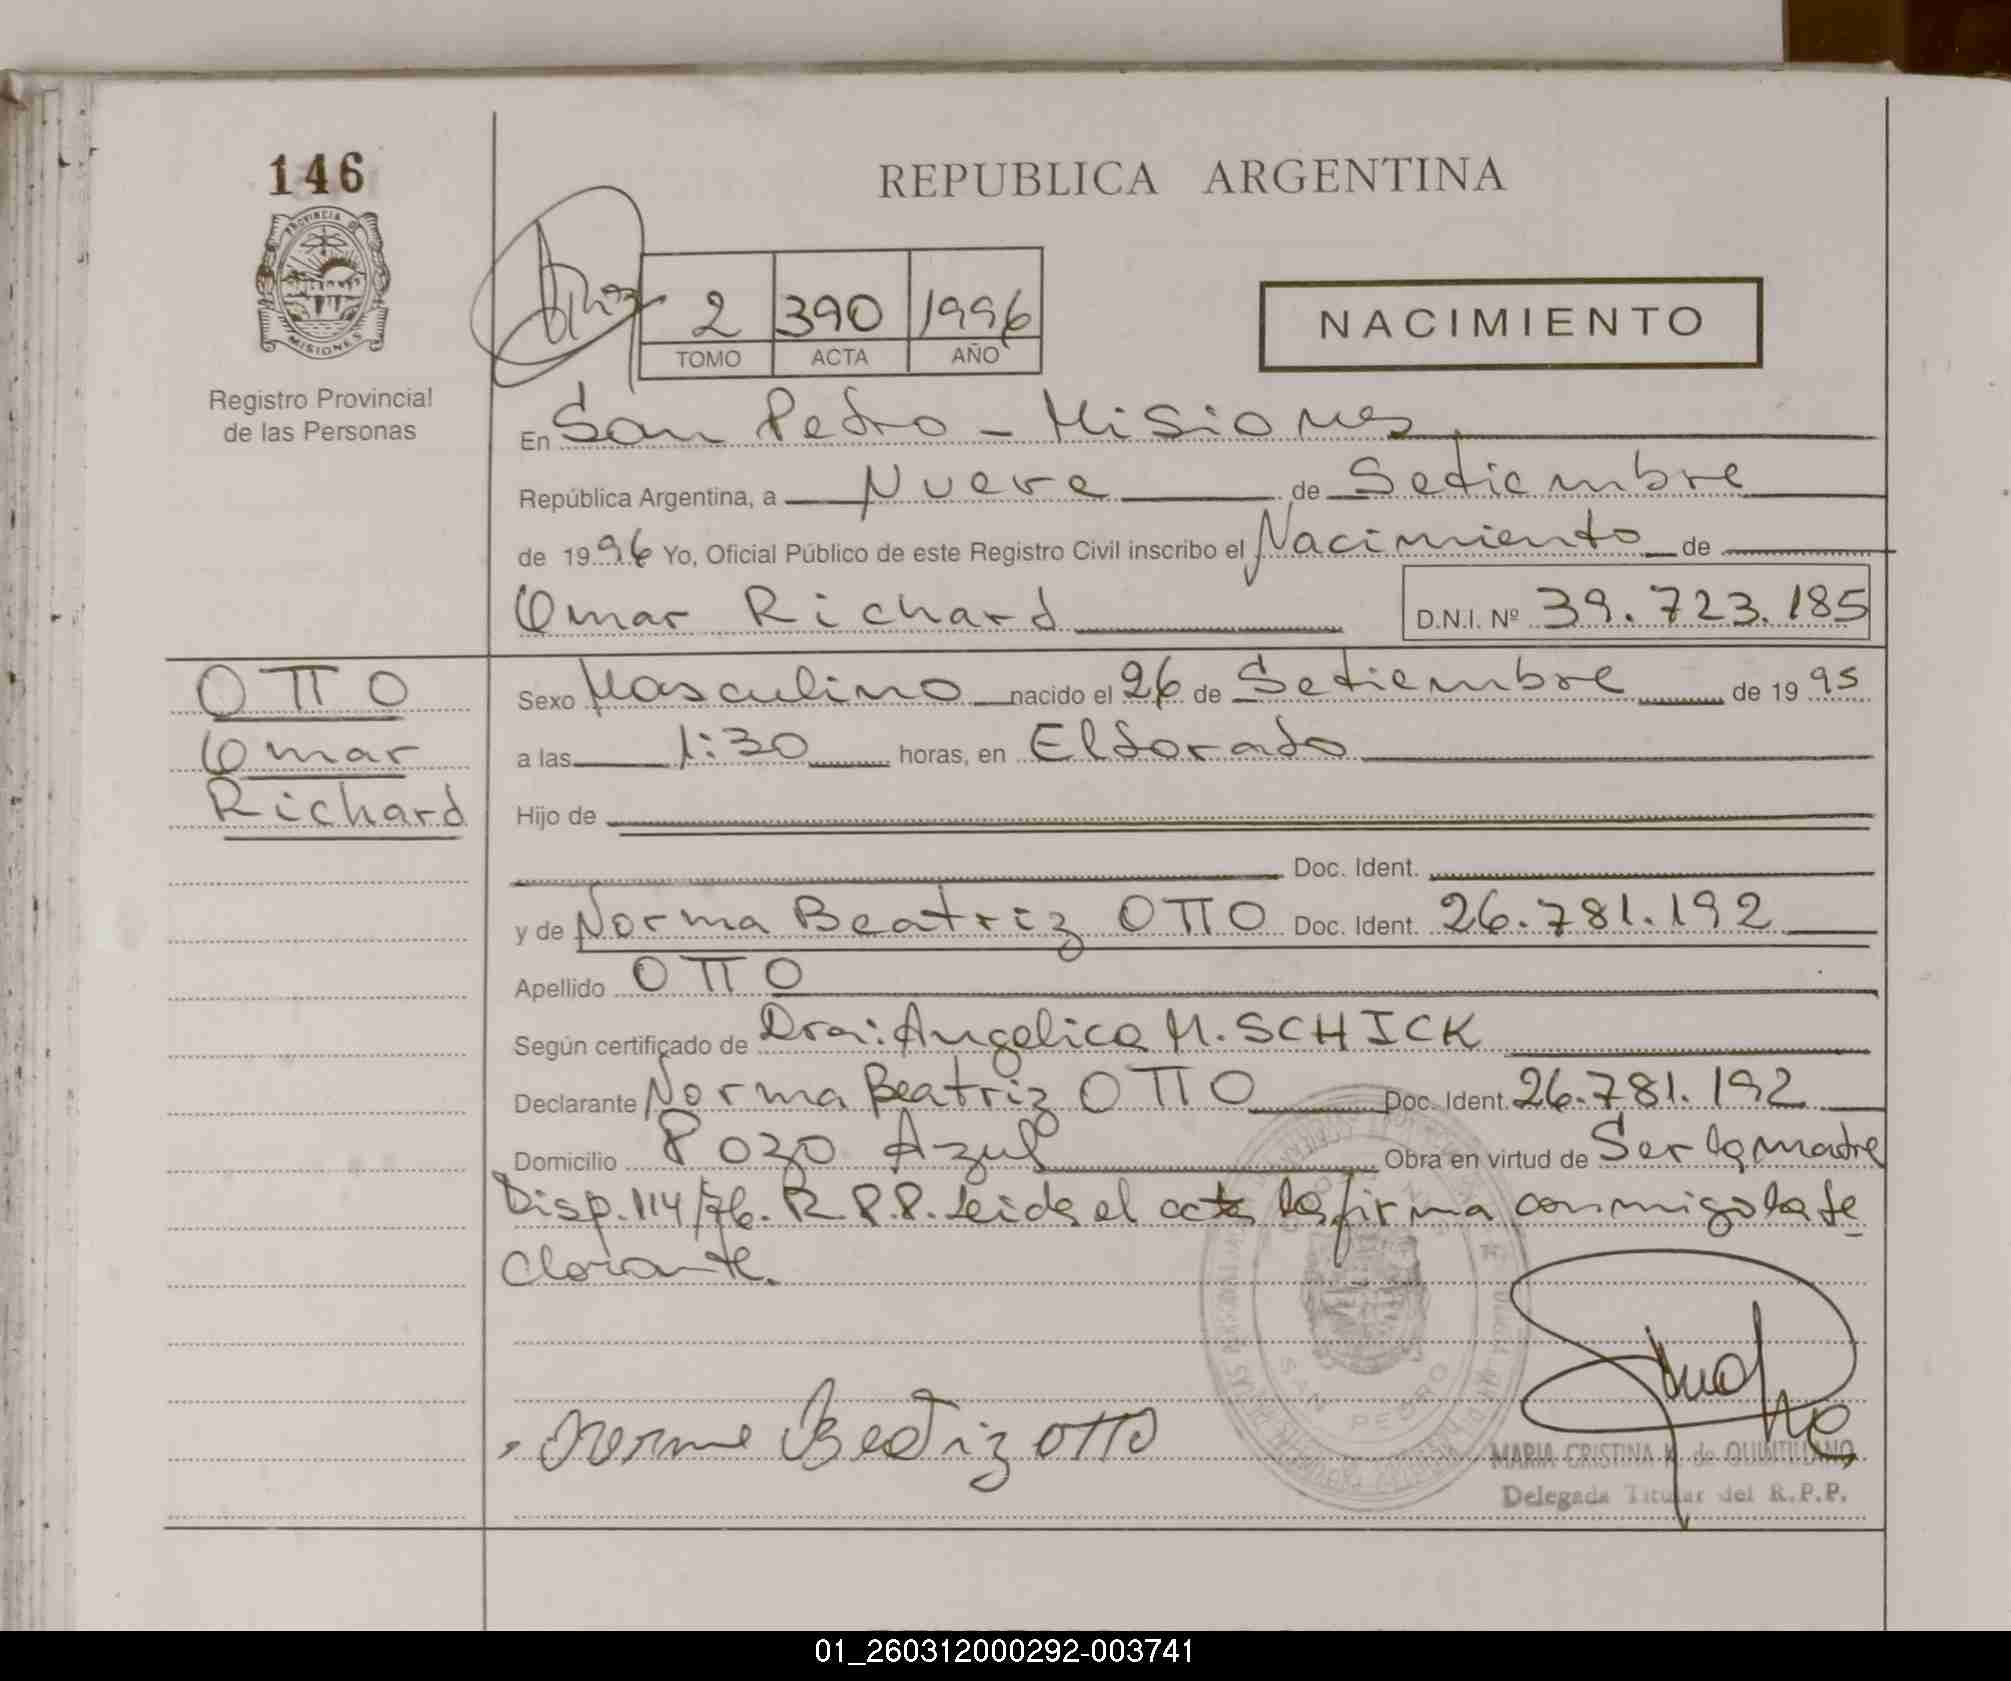 146
REPUBLICA ARGENTINA
PROVINCIA DE
MISIONES
Registro Provincial
de las Personas
2 390 1996
TOMO ACTA AÑO
NACIMIENTO
En San Pedro - Misiones
República Argentina, a Nueve de Setiembre
de 1996 Yo, Oficial Público de este Registro Civil inscribo el Nacimiento de
Omar Richard D.N.I. Nº 39.723.185
OTTO
Omar
Richard
Sexo Masculino nacido el 26 de Setiembre de 1995
a las 1:30 horas, en Eldorado
Hijo de
Doc. Ident.
y de Norma Beatriz OTTO Doc. Ident. 26.781.192
Apellido OTTO
Según certificado de Dra: Angelica M. SCHICK
Declarante Norma Beatriz OTTO Doc. Ident. 26.781.192
Domicilio Pozo Azul Obra en virtud de Ser la madre
Disp. 114/76. R.P.P. Leida el acta la firma conmigo la de
clarante.
SAN PEDRO
Norma Beatriz OTTO
MARIA CRISTINA K. de QUINTILIANO
Delegada Titular del R.P.P.
01_260312000292-003741